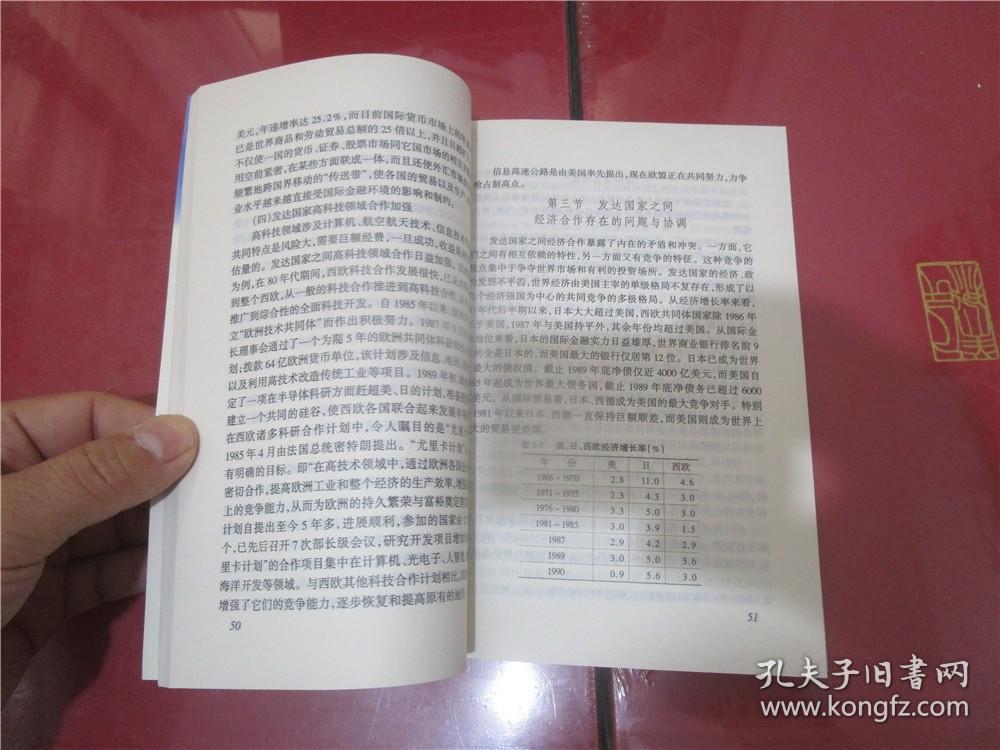 美元,年递增率达25.2%,而目前国际货币市场上的
已是世界商品和劳动贸易总额的25倍以上,并且
不仅使一国的货币、证券、股票市场同它国市场的相互
用空前紧密,在某些方面联成一体,而且还使外汇市场
频繁地跨国界移动的“传送带”,使各国的贸易以及生产
业水平越来越直接受国际金融环境的影响和制约。
(四)发达国家高科技领域合作加强
高科技领域涉及计算机、航空航天技术、信息技术
共同特点是风险大,需要巨额经费,一旦成功,收益
估量的。发达国家之间高科技领域合作日益加强。以
为例,在80年代期间,西欧科技合作发展很快,已从
到整个西欧,从一般的科技合作推进到高科技合作,
推广到综合性的全面科技开发。自1985年以来,欧
立“欧洲技术共同体”而作出积极努力。1987年9月
长理事会通过了一个为期5年的欧洲共同体科研和
划;拨款64亿欧洲货币单位,该计划涉及信息、电讯
以及利用高技术改造传统工业等项目。1989年初,
定了一项在半导体科研方面赶超美、日的计划,准备
建立一个共同的硅谷,使西欧各国联合起来发展半导
在西欧诸多科研合作计划中,令人瞩目的是“尤里
1985年4月由法国总统密特朗提出。“尤里卡计划”
有明确的目标。即“在高技术领域中,通过欧洲各国企
密切合作,提高欧洲工业和整个经济的生产效率,增强
上的竞争能力,从而为欧洲的持久繁荣与富裕奠定
计划自提出至今5年多,进展顺利,参加的国家由
个,已先后召开7次部长级会议,研究开发项目增加
里卡计划”的合作项目集中在计算机、光电子、人工智
海洋开发等领域。与西欧其他科技合作计划相比,
增强了它们的竞争能力,逐步恢复和提高原有的地
50
信息高速公路是由美国率先提出,现在欧盟正在共同努力,力争
抢占制高点。
第三节 发达国家之间
经济合作存在的问题与协调
发达国家之间经济合作暴露了内在的矛盾和冲突。一方面,它
们之间有相互依赖的特性,另一方面又有竞争的特征。这种竞争的
焦点集中于争夺世界市场和有利的投资场所。发达国家的经济、政
治发展不平衡,世界经济由美国主宰的单级格局不复存在,形成了以
个经济强国为中心的共同竞争的多极格局。从经济增长率来看,
年代后半期以来,日本大大超过美国,西欧共同体国家除1986年
于美国,1987年与美国持平外,其余年份均超过美国。从国际金
地位来看,日本的国际金融实力日益雄厚,世界商业银行排名前9
的全是日本的,而美国最大的银行仅居第12位。日本已成为世界
最大的债权国。截止1989年底净债仅近4000亿美元,而美国自
年起成为世界最大债务国,截止1989年底净债务已超过6000
美元。从国际贸易看,日本、西德成为美国的最大竞争对手。特别
1981年以来日本、西德一直保持巨额顺差,而美国则成为世界上
大的贸易逆差国。
表3-3 美、日、西欧经济增长率(%)
年 份 美 日 西欧
1966~1970 2.8 11.0 4.6
1971~1975 2.3 4.3 3.0
1976~1980 3.3 5.0 3.0
1981~1985 3.0 3.9 1.5
1987 2.9 4.2 2.9
1989 3.0 5.0 3.6
1990 0.9 5.6 3.0
51
孔夫子旧書网
www.kongfz.com